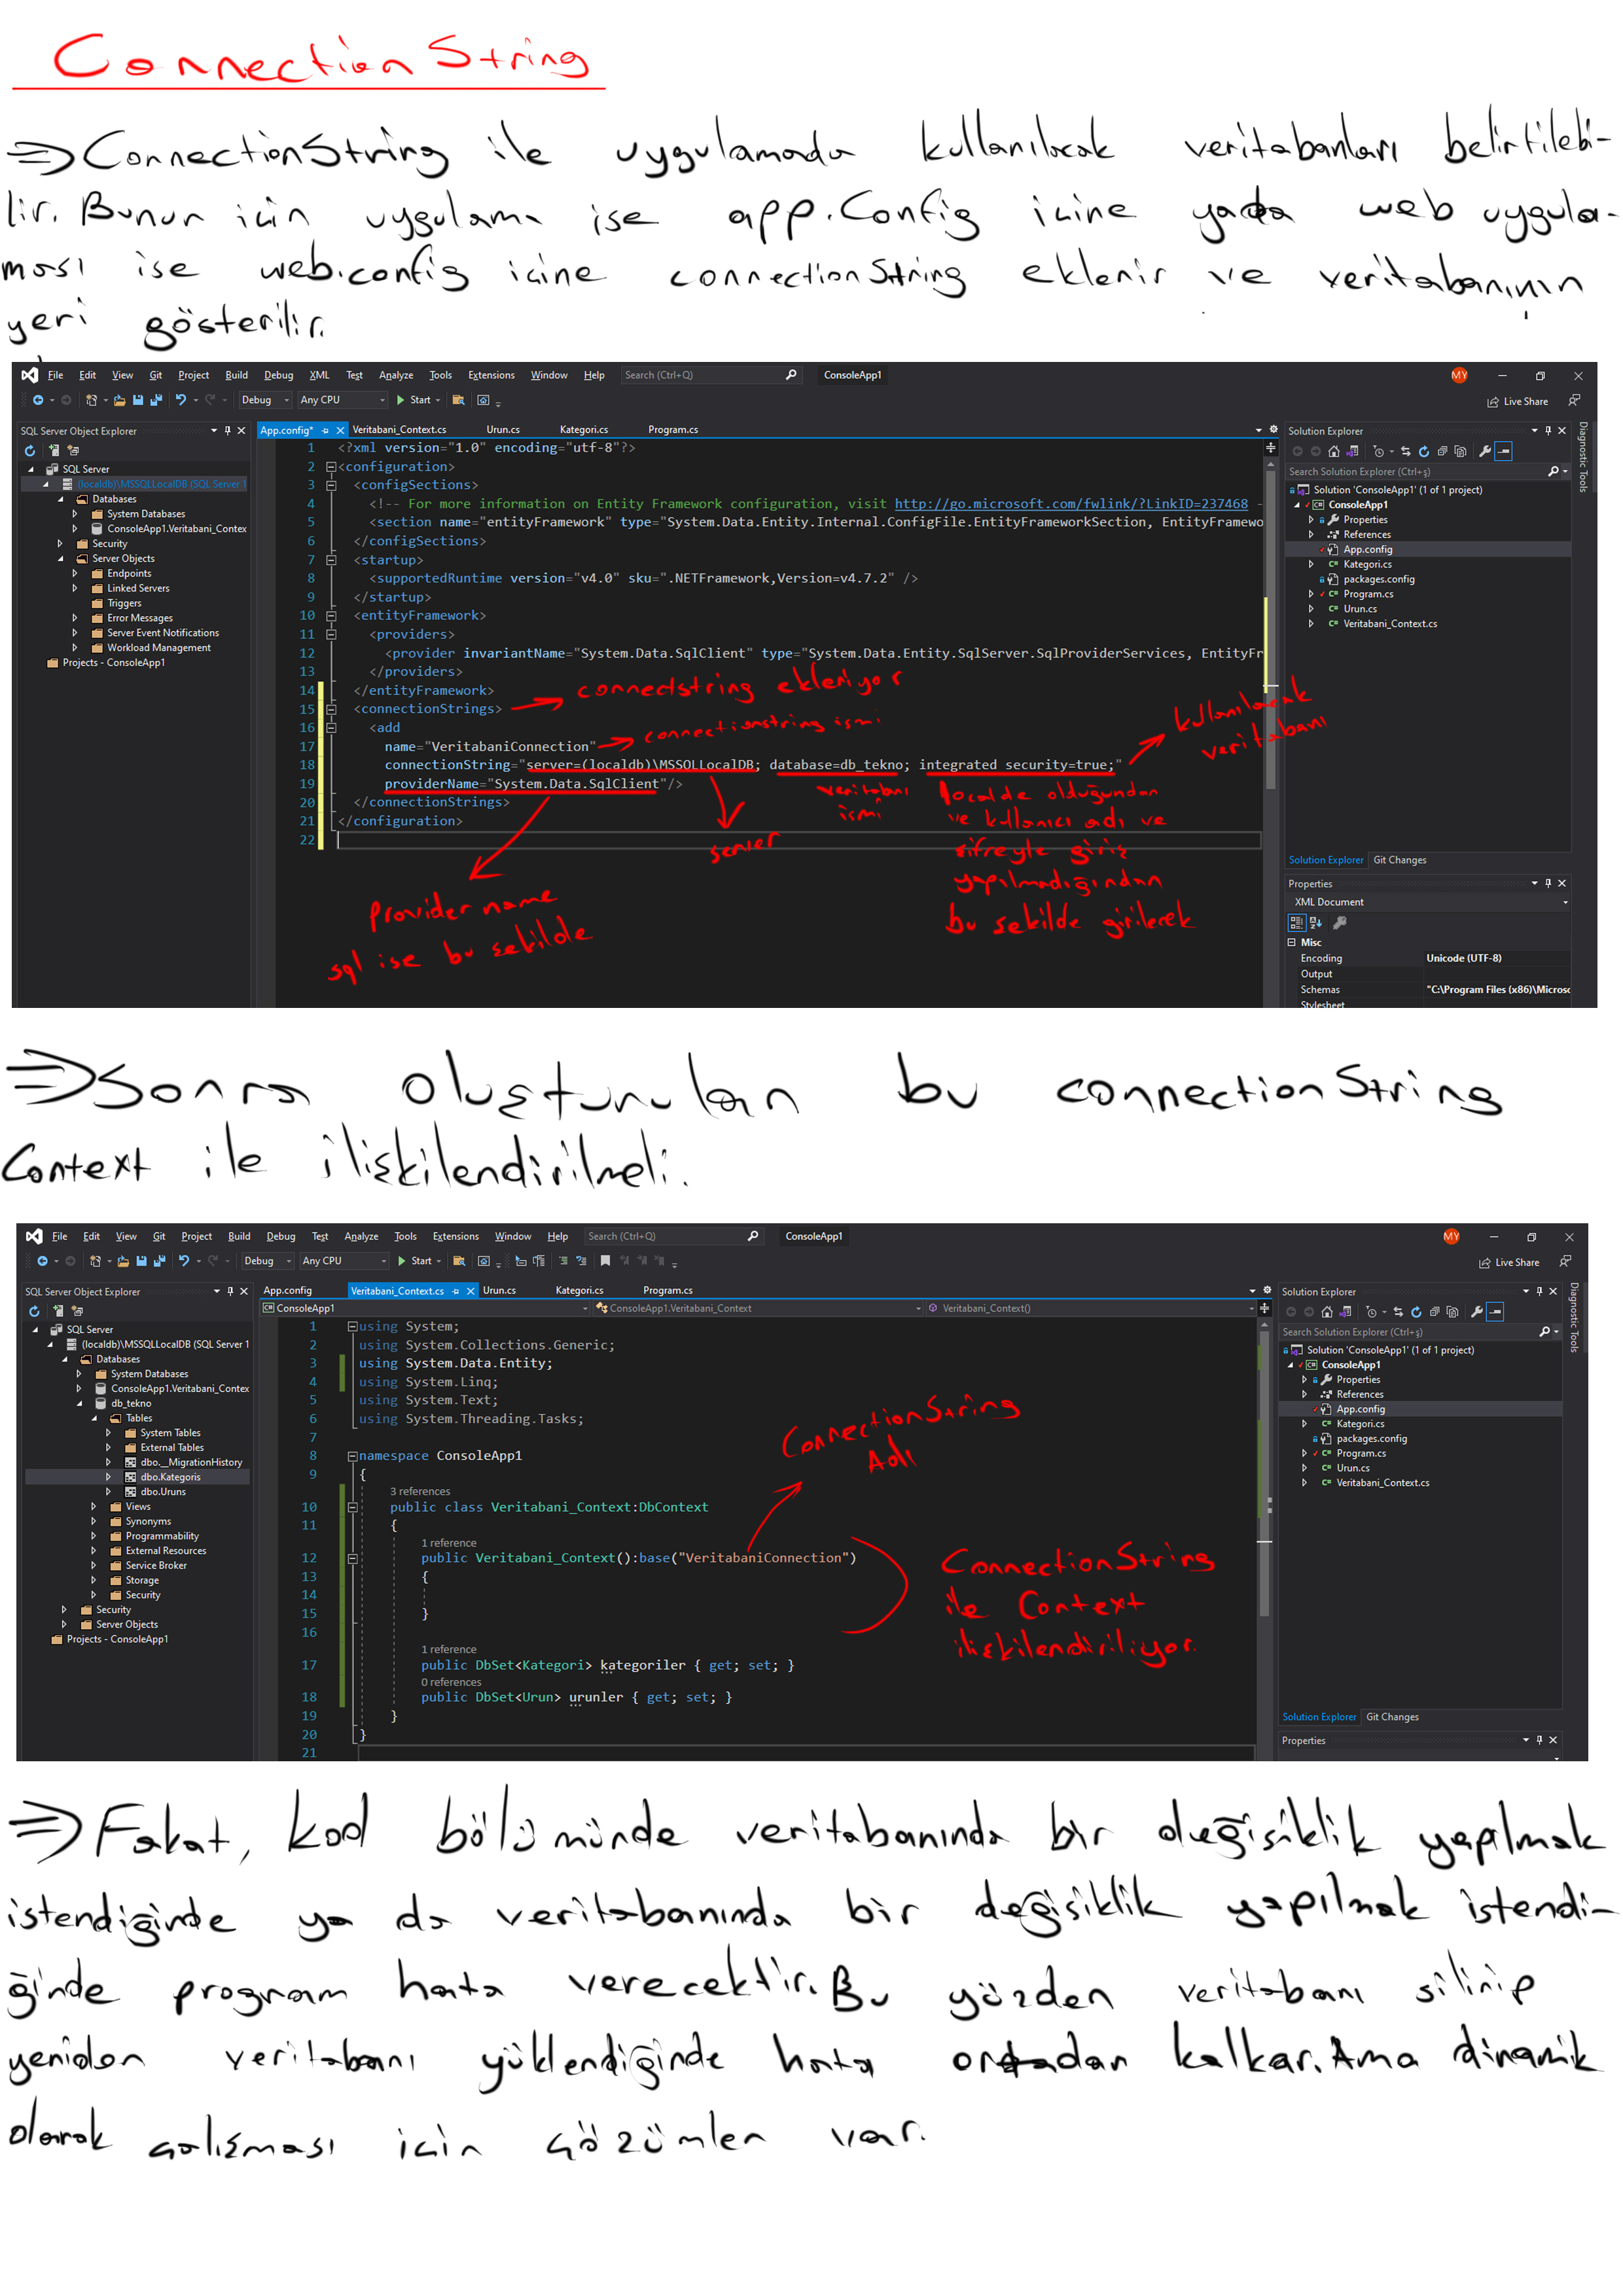 ConnectionString
⇒ ConnectionString ile uygulamada kullanılacak veritabanları belirtilebi-
lir. Bunun için uygulama ise app.Config içine yada web uygula-
ması ise web.config içine connectionString eklenir ve veritabanının
yeri gösterilir.
File Edit View Git Project Build Debug XML Test Analyze Tools Extensions Window Help Search (Ctrl+Q) ConsoleApp1 MY
Debug Any CPU Start Live Share
SQL Server Object Explorer
SQL Server
(localdb)\MSSQLLocalDB (SQL Server 1
Databases
System Databases
ConsoleApp1.Veritabani_Contex
Security
Server Objects
Endpoints
Linked Servers
Triggers
Error Messages
Server Event Notifications
Workload Management
Projects - ConsoleApp1
App.config* Veritabani_Context.cs Urun.cs Kategori.cs Program.cs
1 <?xml version="1.0" encoding="utf-8"?>
2 <configuration>
3 <configSections>
4 <!-- For more information on Entity Framework configuration, visit http://go.microsoft.com/fwlink/?LinkID=237468 -
5 <section name="entityFramework" type="System.Data.Entity.Internal.ConfigFile.EntityFrameworkSection, EntityFramewo
6 </configSections>
7 <startup>
8 <supportedRuntime version="v4.0" sku=".NETFramework,Version=v4.7.2" />
9 </startup>
10 <entityFramework>
11 <providers>
12 <provider invariantName="System.Data.SqlClient" type="System.Data.Entity.SqlServer.SqlProviderServices, EntityFr
13 </providers>
14 </entityFramework>
15 <connectionStrings>
16 <add
17 name="VeritabaniConnection"
18 connectionString="server=(localdb)\MSSQLLocalDB; database=db_tekno; integrated security=true;"
19 providerName="System.Data.SqlClient"/>
20 </connectionStrings>
21 </configuration>
22
connectstring ekleniyor
connectionstring ismi
kullanılacak
veritabanı
veritabanı
ismi
server
localde olduğundan
ve kullanıcı adı ve
şifreyle giriş
yapılmadığından
bu şekilde girilecek
provider name
sql ise bu şekilde
Solution Explorer
Search Solution Explorer (Ctrl+ş)
Solution 'ConsoleApp1' (1 of 1 project)
ConsoleApp1
Properties
References
App.config
Kategori.cs
packages.config
Program.cs
Urun.cs
Veritabani_Context.cs
Diagnostic Tools
Solution Explorer Git Changes
Properties
XML Document
Misc
Encoding Unicode (UTF-8)
Output
Schemas "C:\Program Files (x86)\Microsc
Stylesheet
⇒ Sonra oluşturulan bu connectionString
Context ile ilişkilendirilmeli.
File Edit View Git Project Build Debug Test Analyze Tools Extensions Window Help Search (Ctrl+Q) ConsoleApp1 MY
Debug Any CPU Start Live Share
SQL Server Object Explorer
SQL Server
(localdb)\MSSQLLocalDB (SQL Server 1
Databases
System Databases
ConsoleApp1.Veritabani_Contex
db_tekno
Tables
System Tables
External Tables
dbo.__MigrationHistory
dbo.Kategoris
dbo.Uruns
Views
Synonyms
Programmability
External Resources
Service Broker
Storage
Security
Security
Server Objects
Projects - ConsoleApp1
App.config Veritabani_Context.cs Urun.cs Kategori.cs Program.cs
ConsoleApp1 ConsoleApp1.Veritabani_Context Veritabani_Context()
1 using System;
2 using System.Collections.Generic;
3 using System.Data.Entity;
4 using System.Linq;
5 using System.Text;
6 using System.Threading.Tasks;
7
8 namespace ConsoleApp1
9 {
3 references
10 public class Veritabani_Context:DbContext
11 {
1 reference
12 public Veritabani_Context():base("VeritabaniConnection")
13 {
14
15 }
16
1 reference
17 public DbSet<Kategori> kategoriler { get; set; }
0 references
18 public DbSet<Urun> urunler { get; set; }
19 }
20 }
21
ConnectionString
Adı
ConnectionString
ile Context
ilişkilendiriliyor.
Solution Explorer
Search Solution Explorer (Ctrl+ş)
Solution 'ConsoleApp1' (1 of 1 project)
ConsoleApp1
Properties
References
App.config
Kategori.cs
packages.config
Program.cs
Urun.cs
Veritabani_Context.cs
Diagnostic Tools
Solution Explorer Git Changes
Properties
⇒ Fakat, kod bölümünde veritabanında bir değişiklik yapılmak
istendiğinde ya da veritabanında bir değişiklik yapılmak istendi-
ğinde program hata verecektir. Bu yüzden veritabanı silinip
yeniden veritabanı yüklendiğinde hata ortadan kalkar. Ama dinamik
olarak çalışması için çözümler var.